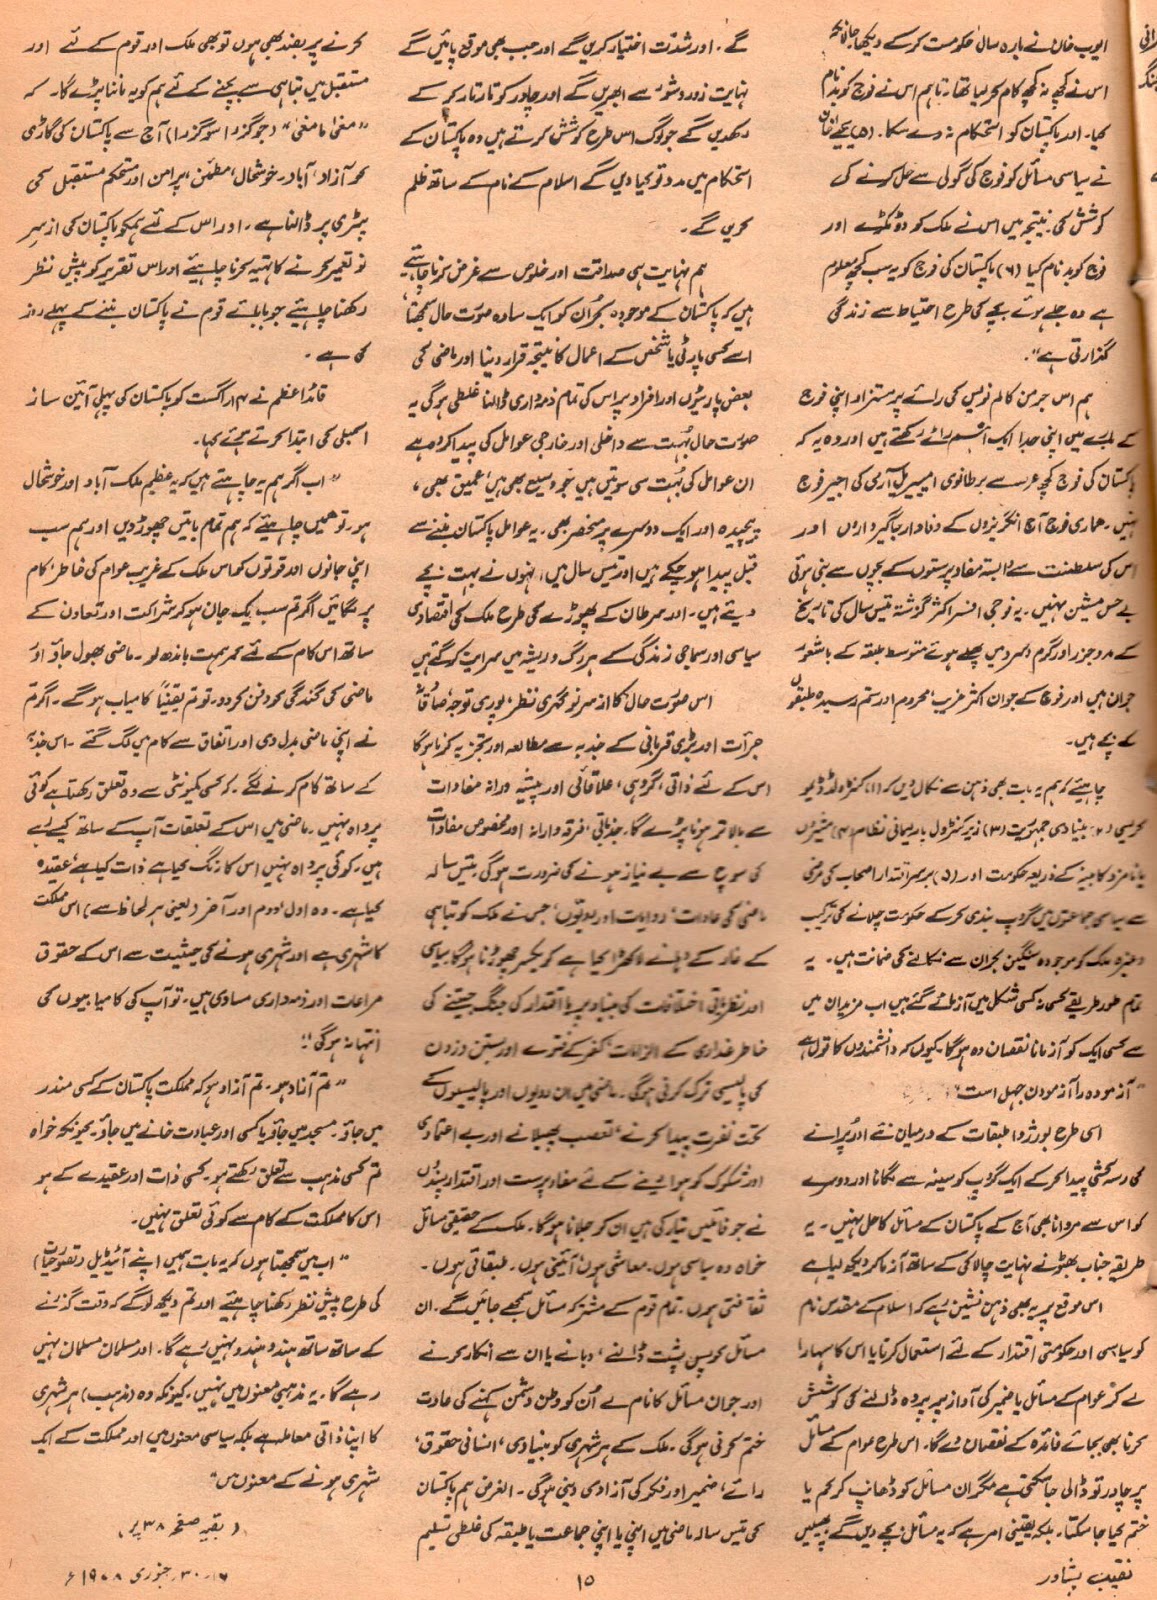 ایوب خان نے بارہ سال حکومت کرکے دیکھا جانا
اس نے کچھ نہ کچھ کام کر لیا تھا۔ تاہم اس نے فوج کو بدنام
کیا۔ اور پاکستان کو استحکام نہ دے سکا۔ (۵) یحییٰ خان
نے سیاسی مسائل کو فوج کی گولی سے حل کرنے کی
کوشش کی۔ نتیجہ میں اس نے ملک کو دو ٹکڑے اور
فوج کو بدنام کیا (۶) پاکستان کی فوج کو یہ سب کچھ معلوم
ہے وہ جلے ہوئے بچے کی طرح احتیاط سے زندگی
گذارتی ہے"۔
ہم اس جرمن کالم نویس کی رائے پر مستزاد اپنی فوج
کے بارے میں اپنی جدا ایک اہم رائے رکھتے ہیں اور وہ یہ کہ
پاکستان کی فوج کچھ عرصے سے برطانوی امپیریل آرمی کی اجیر فوج
نہیں۔ ہماری فوج آج انگریزوں کے وفادار جاگیرداروں اور
اس کی سلطنت سے وابستہ مفاد پرستوں کے بچوں سے بنی ہوئی
بے حس مشین نہیں۔ یہ فوجی افسر اکثر گزشتہ تیس سال کی تاریخ
کے مدوجزر اور گرم و سرد میں پلے ہوئے متوسط طبقہ کے باشعور
جوان ہیں اور فوج کے جوان اکثر غریب، محروم اور ستم رسیدہ طبقوں
کے بچے ہیں۔
چاہیئے کہ ہم یہ بات بھی ذہن سے نکال دیں کہ (۱) کنٹرولڈ ڈیمو
کریسی (۲) بنیادی جمہوریت (۳) زیر کنٹرول پارلیمانی نظام (۴) مشیروں
یا نامزد کابینہ کے ذریعہ حکومت اور (۵) برسر اقتدار اصحاب کی مرضی
سے سیاسی جماعتوں میں گروپ بندی کرکے حکومت چلانے کی ترکیب
وغیرہ ملک کو موجودہ سنگین بحران سے نکالنے کی ضمانت ہیں۔ یہ
تمام طور طریقے کسی نہ کسی شکل میں آزمائے گئے ہیں اب مزید ان میں
سے کسی ایک کو آزمانا نقصان دہ ہوگا۔ کیوں کہ دانشمندوں کا قول ہے
"آزمودہ را آزمودن جہل است"
اسی طرح بورژوا طبقات کے درمیان نئے اور پرانے
کی رسہ کشی پیدا کرکے ایک گروپ کو سینہ سے لگانا اور دوسرے
کو اس سے مروانا بھی آج کے پاکستان کے مسائل کا حل نہیں۔ یہ
طریقہ جناب بھٹو نے نہایت چالاکی کے ساتھ آزما کر دیکھ لیا ہے
اس موقع پر یہ بھی ذہن نشین رہے کہ اسلام کے مقدس نام
کو سیاسی اور حکومتی اقتدار کے لئے استعمال کرنا یا اس کا سہارا
لے کر عوام کے مسائل یا ضمیر کی آواز پر پردہ ڈالنے کی کوشش
کرنا بھی بجائے فائدہ کے نقصان دے گا۔ اس طرح عوام کے مسائل
پر چادر تو ڈالی جا سکتی ہے مگر ان مسائل کو ڈھانپ کر کم یا
ختم کیا جا سکتا۔ بلکہ یقینی امر ہے کہ یہ مسائل بچے دیں گے پھیلیں
گے۔ اور شدت اختیار کریں گے اور جب بھی موقع پائیں گے
نہایت زور و شور سے ابھریں گے اور چادر کو تار تار کر کے
رکھدیں گے جو لوگ اس طرح کوشش کرتے ہیں وہ پاکستان کے
استحکام میں مدد تو کیا دیں گے اسلام کے نام کے ساتھ ظلم
کریں گے۔
ہم نہایت ہی صداقت اور خلوص سے عرض کرنا چاہتے
ہیں کہ پاکستان کے موجودہ بحران کو ایک سادہ صورت حال سمجھنا
اسے کسی پارٹی یا شخص کے اعمال کا نتیجہ قرار دینا اور ماضی کی
بعض پارٹیوں اور افراد پر اس کی تمام ذمہ داری ڈالنا غلطی ہوگی یہ
صورت حال بہت سے داخلی اور خارجی عوامل کی پیدا کردہ ہے
ان عوامل کی بہت سی سوتیں ہیں جو وسیع بھی ہیں، عمیق بھی،
پیچیدہ اور ایک دوسرے پر منحصر بھی۔ یہ عوامل پاکستان بننے سے
قبل پیدا ہو چکے ہیں اور تیس سال میں، انہوں نے بہت بچے
دیئے ہیں۔ اور سرطان کے پھوڑے کی طرح ملک کی اقتصادی
سیاسی اور سماجی زندگی کے ہر رگ و ریشہ میں سرایت کر گئے ہیں
اس صورت حال کا ازسر نو گہری نظر، پوری توجہ، صداقت
جرأت اور بڑی قربانی کے جذبہ سے مطالعہ اور تجزیہ کرنا ہوگا
اس کے لئے ذاتی، گروہی، علاقائی اور پیشہ ورانہ مفادات
سے بالاتر ہونا پڑے گا۔ جذباتی، فرقہ وارانہ اور مخصوص مفادات
کی سوچ سے بے نیاز ہونے کی ضرورت ہوگی بتیس سالہ
ماضی کی عادات، روایات اور رویوں، جس نے ملک کو تباہی
کے غار کے دہانے لا کھڑا کیا ہے کو یکسر چھوڑنا ہوگا سیاسی
اور نظریاتی اختلافات کی بنیاد پر یا اقتدار کی جنگ جیتنے کی
خاطر غداری کے الزامات، کفر کے فتوے اور بستن و زدن
کی پالیسی ترک کرنی ہوگی۔ ماضی میں ان رویوں اور پالیسیوں کے
تحت نفرت پیدا کرنے، تعصب پھیلانے اور بے اعتمادی
اور شکوک کو ہوا دینے کے لئے مفاد پرست اور اقتدار پسندوں
نے جو فائلیں تیار کی ہیں ان کو جلانا ہوگا۔ ملک کے حقیقی مسائل
خواہ وہ سیاسی ہوں۔ معاشی ہوں، آئینی ہوں۔ طبقاتی ہوں۔
ثقافتی ہوں۔ تمام قوم کے مشترکہ مسائل سمجھے جائیں گے۔ ان
مسائل کو پس پشت ڈالنے، دبانے یا ان سے انکار کرنے
اور جو ان مسائل کا نام لے اُن کو وطن دشمن کہنے کی عادت
ختم کرنی ہوگی۔ ملک کے ہر شہری کو بنیادی، انسانی حقوق،
رائے، ضمیر اور فکر کی آزادی دینی ہوگی۔ الغرض ہم پاکستان
کی تیس سالہ ماضی میں اپنی یا اپنی جماعت یا طبقہ کی غلطی تسلیم
کرنے پر بضد بھی ہوں تو بھی ملک اور قوم کے لئے اور
مستقبل میں تباہی سے بچنے کے لئے ہم کو یہ ماننا پڑے گا۔ کہ
"مضیٰ ما مضیٰ" (جو گزرا سو گزرا) آج سے پاکستان کی گاڑی
کو آزاد، آباد۔ خوشحال، مطمئن، پرامن اور مستحکم مستقبل کی
پٹڑی پر ڈالنا ہے۔ اور اس کے لئے ہم کو پاکستان کی ازسر
نو تعمیر کرنے کا تہیہ کرنا چاہیئے اور اس تقریر کو پیش نظر
رکھنا چاہیئے جو بابائے قوم نے پاکستان بننے کے پہلے روز
کی ہے۔
قائد اعظم نے ۱۴ اگست کو پاکستان کی پہلی آئین ساز
اسمبلی کی ابتدا کرتے ہوئے کہا۔
"اب اگر ہم یہ چاہتے ہیں کہ یہ عظیم ملک آباد اور خوشحال
ہو۔ تو ہمیں چاہیئے کہ ہم تمام باتیں چھوڑ دیں اور ہم سب
اپنی جانوں اور قوتوں کو اس ملک کے غریب عوام کی خاطر، کام
پر لگائیں اگر تم سب یک جان ہو کر شراکت اور تعاون کے
ساتھ اس کام کے لئے کمر ہمت باندھ لو۔ ماضی بھول جاؤ اور
ماضی کی گندگی کو دفن کردو۔ تو تم یقیناً کامیاب ہوگے۔ اگر تم
نے اپنی ماضی بدل دی اور اتفاق سے کام میں لگ گئے۔ اس جذبہ
کے ساتھ کام کرنے لگے۔ کہ کسی کمیونٹی سے وہ تعلق رکھتا ہے کوئی
پرواہ نہیں۔ ماضی میں اس کے تعلقات آپ کے ساتھ کیسے رہے
ہیں۔ کوئی پرواہ نہیں اس کا رنگ کیا ہے ذات کیا ہے، عقیدہ
کیا ہے۔ وہ اول، دوم اور آخر (یعنی ہر لحاظ سے) اس مملکت
کا شہری ہے اور شہری ہونے کی حیثیت سے اس کے حقوق
مراعات اور ذمہ داری مساوی ہیں۔ تو آپ کی کامیابیوں کی
انتہا نہ ہوگی"
"تم آزاد ہو۔ تم آزاد ہو کہ مملکت پاکستان کے کسی مندر
میں جاؤ۔ مسجد میں جاؤ یا کسی اور عبادت خانے میں جاؤ۔ کیونکہ خواہ
تم کسی مذہب سے تعلق رکھتے ہو۔ کسی ذات اور عقیدے کے ہو
اس کا مملکت کے کام سے کوئی تعلق نہیں۔
"اب میں سمجھتا ہوں کہ یہ بات ہمیں اپنے آئیڈیل (تصورِ حیات)
کی طرح پیش نظر رکھنا چاہیئے اور تم دیکھ لو گے کہ وقت گذرنے
کے ساتھ ساتھ ہندو ہندو نہیں رہے گا۔ اور مسلمان مسلمان نہیں
رہے گا۔ یہ مذہبی معنوں میں نہیں۔ کیونکہ وہ (مذہب) ہر شہری
کا اپنا ذاتی معاملہ ہے بلکہ سیاسی معنوں میں اور مملکت کے ایک
شہری ہونے کے معنوں میں"
(بقیہ صفحہ ۳۸ پر)
نقیب پشاور
۱۵
جنوری